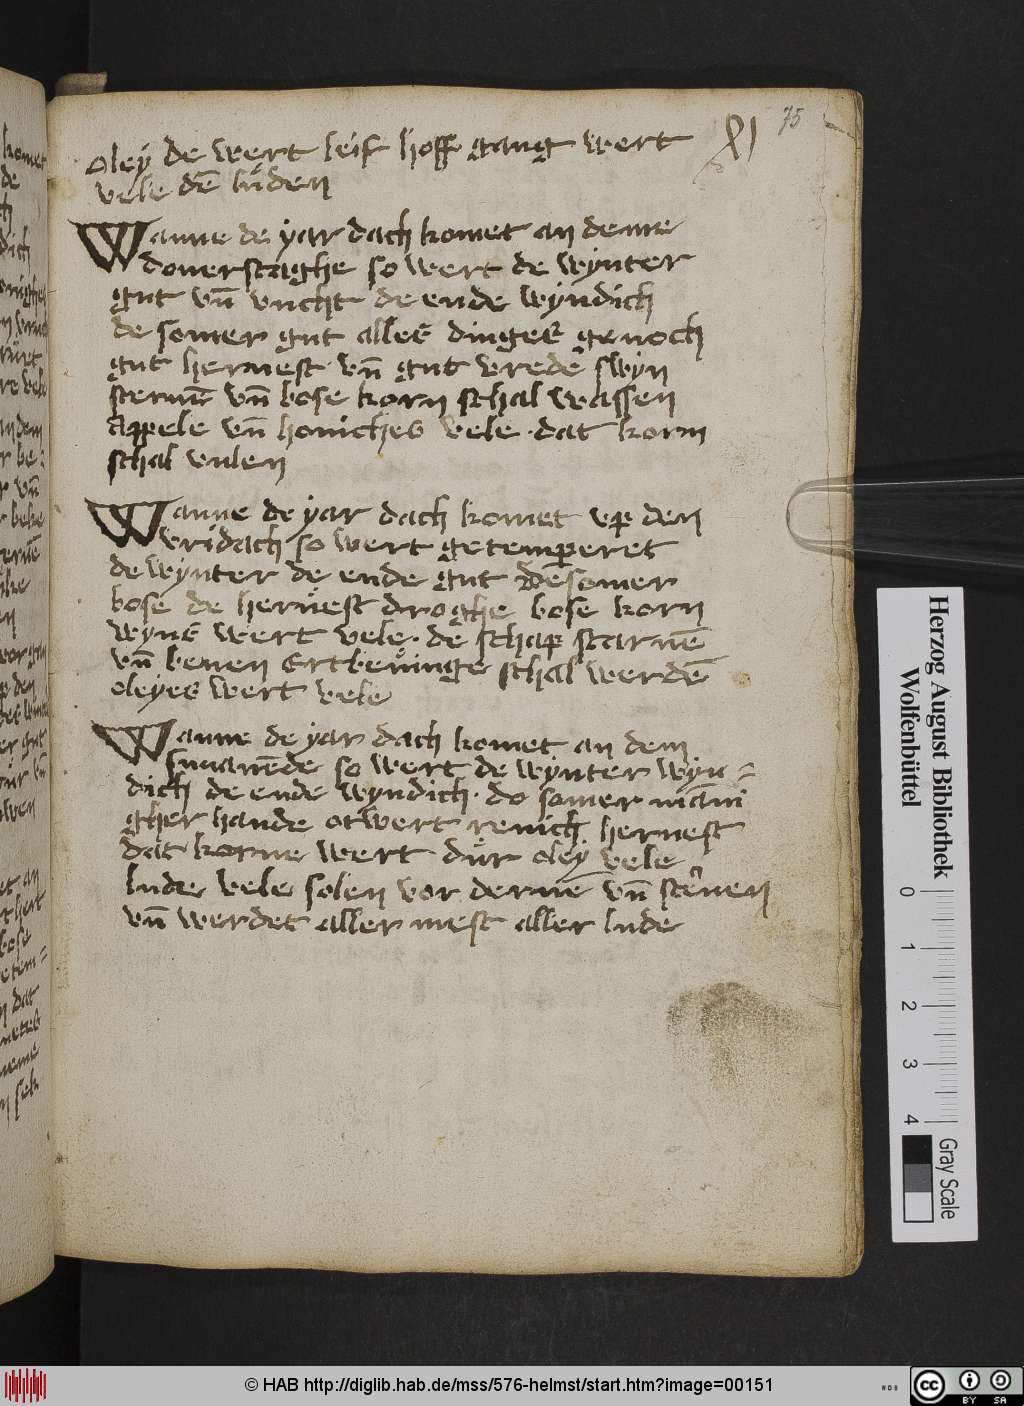 75
XI
oley de wert leif hoff gang wert
vele dē lůden
Wanne de yar dach komet an deme
donerstaghe so wert de wynter
gut vn̄ vucht de ende wyndich
de somer gut alles dinges genoch
gut heruest vn̄ gut vrede swyn
steruē vn̄ bose korn schal wassen
Appele vn̄ honiches vele · dat korn
schal vulen
Wanne de yar dach komet vp den
vridach so wert getemperet
de wynter de ende gut De somer
bose de heruest droghe bose korn
wyns wert vele · de schap staruē
vn̄ beuen Ertbeuinge schal werdē
oleyes wert vele
Wanne de yar dach komet an dem
sunauēde so wert de wynter wyn=
dich de ende wyndich · de somer māni
gher hande otwert renich heruest
dat korne wert důr oley vele
lude vele solen vor deruē vn̄ steruen
vn̄ werdet aller mest aller lude
Herzog August Bibliothek
Wolfenbüttel
0 1 2 3 4
Gray Scale
© HAB http://diglib.hab.de/mss/576-helmst/start.htm?image=00151
WDB
cc BY SA